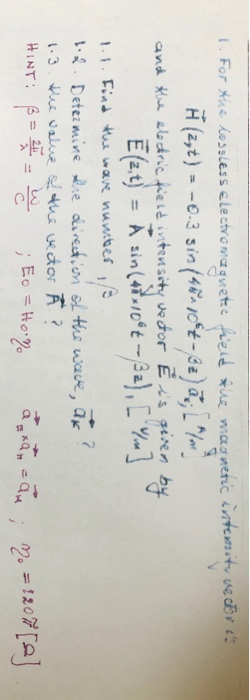 1. For the lossless electromagnetic field the magnetic intensity vector is
H⃗(z,t) = -0.3 sin(4π×10⁶t - βz) a⃗ₓ [A/m]
and the electric field intensity vector E⃗ is given by
E⃗(z,t) = A⃗ sin(4π×10⁶t - βz), [V/m]
1.1. Find the wave number, β
1.2. Determine the direction of the wave, a⃗ₖ ?
1.3. the value of the vector A⃗ ?
HINT: β = 2π/λ = ω/c ; E₀ = H₀·η₀ a⃗_E × a⃗_H = a⃗_k ; η₀ = 120π [Ω]